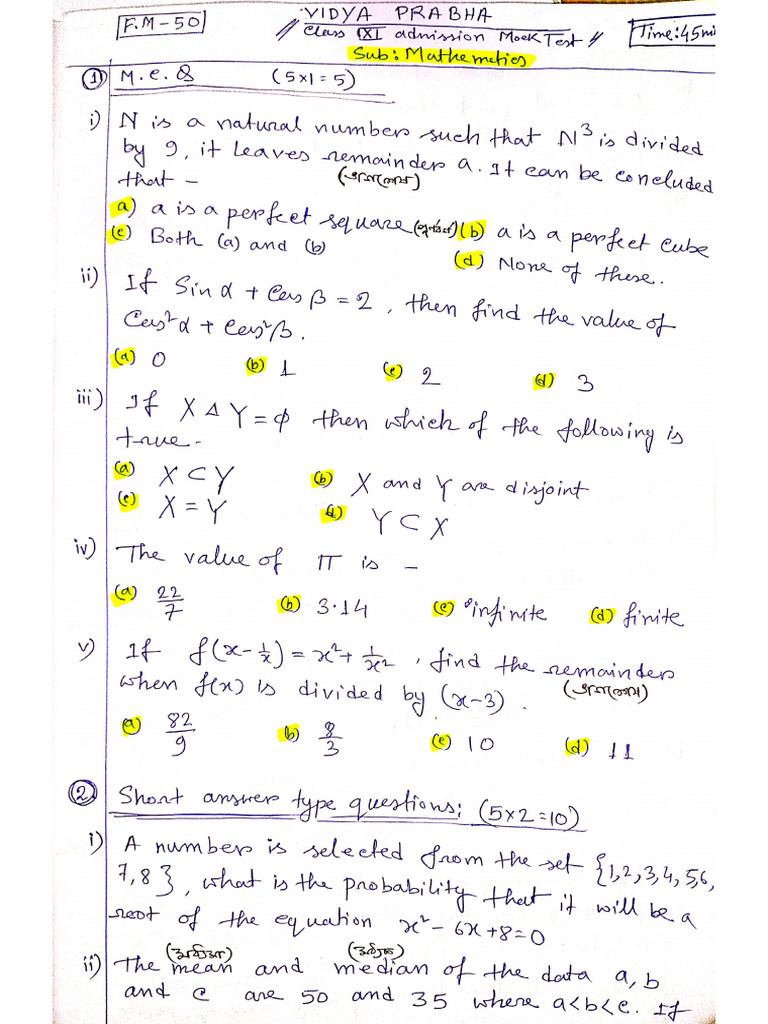 F.M-50
VIDYA PRABHA
// Class XI admission Mock Test //
Time: 45 mi
Sub: Mathematics
① M.C.Q (5x1=5)
i) N is a natural number such that N³ is divided
by 9, it leaves remainder a. It can be concluded
that - (ভাগশেষ)
a) a is a perfect square (পূর্ণবর্গ) (b) a is a perfect cube
(c) Both (a) and (b)
(d) None of these.
ii) If Sin α + Cos β = 2, then find the value of
Cos²α + Cos²β.
(a) 0 (b) 1 (c) 2 (d) 3
iii) If X Δ Y = φ then which of the following is
true.-
(a) X ⊂ Y (b) X and Y are disjoint
(c) X = Y (d) Y ⊂ X
iv) The value of π is -
(a) 22/7 (b) 3.14 (c) infinite (d) finite
v) If f(x-1/x) = x² + 1/x², find the remainder
when f(x) is divided by (x-3). (ভাগশেষ)
(a) 82/9 (b) 8/3 (c) 10 (d) 11
② Short answer type questions: (5x2=10)
i) A number is selected from the set {1,2,3,4,5,6,
7,8}, what is the probability that it will be a
root of the equation x² - 6x + 8 = 0
ii) The mean and median of the data a, b
and c are 50 and 35 where a<b<c. If